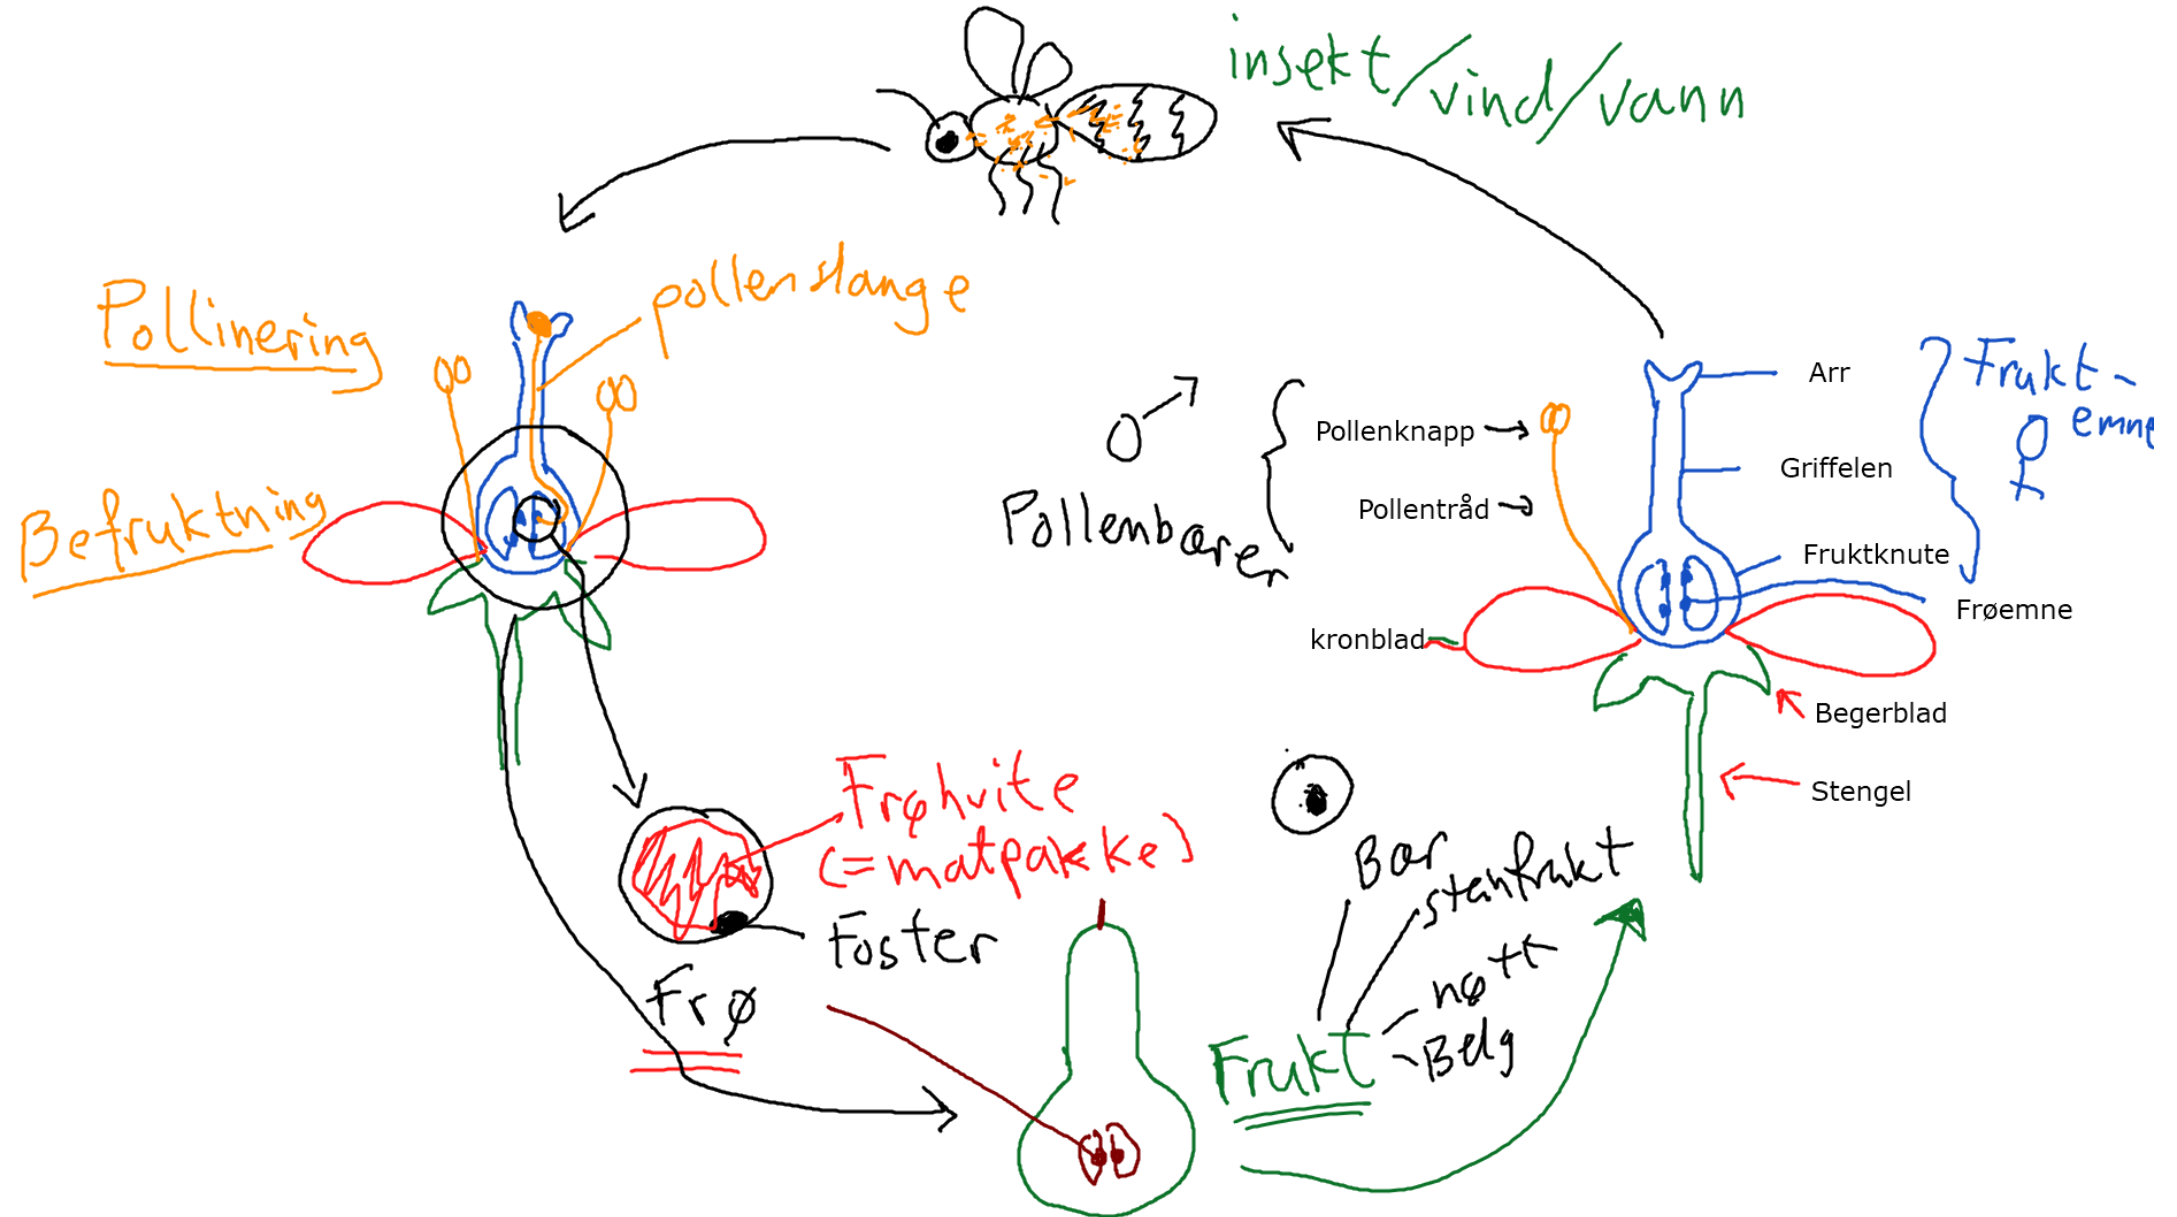 insekt/vind/vann
Pollinering
pollenslange
Befruktning
Pollenbærer
Pollenknapp
Pollentråd
kronblad
Arr
Griffelen
Fruktknute
Frøemne
Frukt-
emne
Begerblad
Stengel
Frøhvite
(=matpakke)
Foster
Frø
Bær
steinfrukt
nøtt
Belg
Frukt